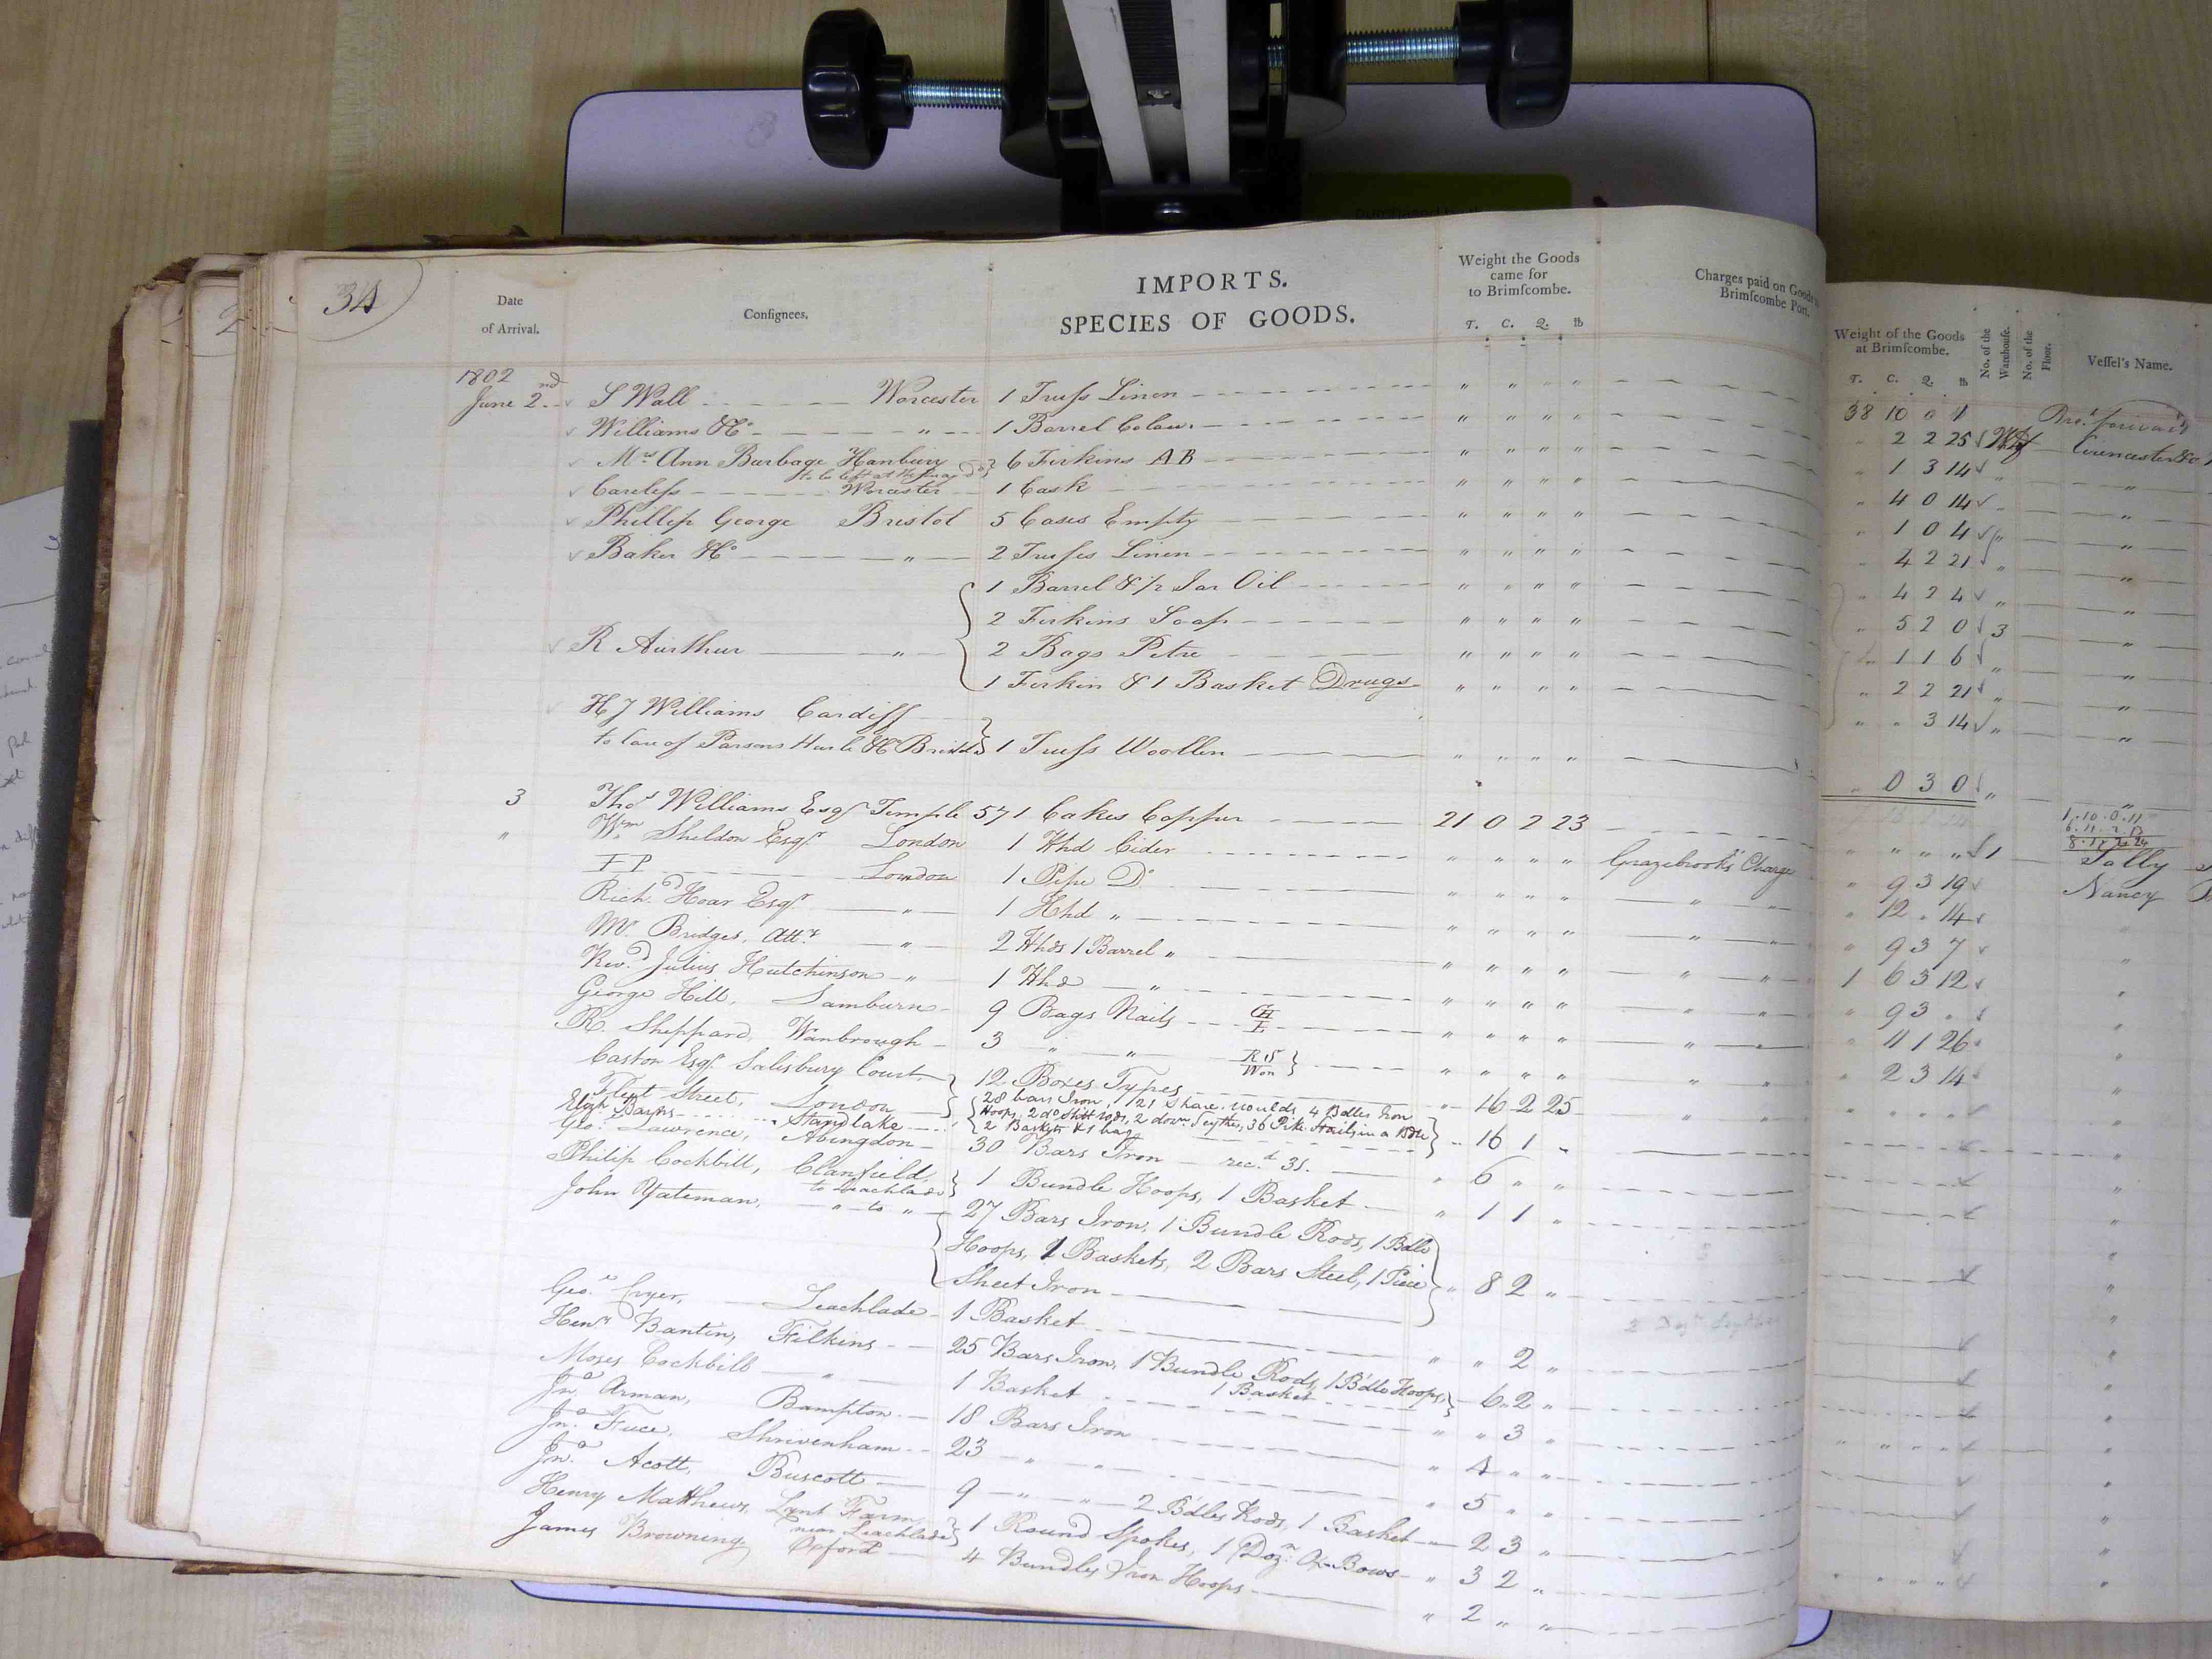 34
Date
of Arrival.
Consignees.
IMPORTS.
SPECIES OF GOODS.
Weight the Goods
came for
to Brimscombe.
T. C. Q. lb
Charges paid on Goods
Brimscombe Port.
Weight of the Goods
at Brimscombe.
T. C. Q. lb
No. of the
Warehouse.
No. of the
Floor.
Vessel's Name.
1802
June 2nd S Wall Worcester 1 Truss Linen " " " "
Williams & Co " 1 Barrel Colour " " " "
Mrs Ann Burbage Hanbury 6 Firkins AB " " " "
to be left at the
Careless Worcester 1 Cask " " " "
Phillip George Bristol 5 Cases Empty " " " "
Baker & Co " 2 Trusses Linen " " " "
1 Barrel & 1/2 Jar Oil " " " "
2 Firkins Soap " " " "
R Airthur " 2 Bags Petre " " " "
1 Firkin & 1 Basket Drugs " " " "
H J Williams Cardiff
to Care of Parsons Hurle & Co Bristol 1 Truss Woollen " " " "
3 Thos Williams Esqr Temple 571 Cakes Copper 21 0 2 23
" Wm Sheldon Esqr London 1 Hhd Cider " " " " Grazebrook's Charge
F P London 1 Pipe Do " " " " " "
Richd Hoar Esqr " 1 Hhd " " " " " " "
Mr Bridges, Atty " 2 Hhds 1 Barrel " " " " " " "
Revd Julius Hutchinson " 1 Hhd " " " " " " "
George Hill, Samburn 9 Bags Nails GH " " " " " "
R. Sheppard, Wanbrough 3 " " RS Won " " " " " "
Caston Esqr Salisbury Court,
Fleet Street, London 12 Boxes Types " 16 2 25 " "
Elizh Barns Standlake 28 bars Iron, 1/21 Share moulds, 4 Bdles Iron
Hoops, 2 do Slitt rods, 2 dozn Scythes, 36 Pike Stails in a Bdle
2 Baskets & 1 bag " 16 1 "
Geo. Lawrence, Abingdon 30 Bars Iron recd 31. " 6 " "
Philip Cockbill, Clanfield,
to Leachlade 1 Bundle Hoops, 1 Basket " 1 1 "
John Yateman, " to " 27 Bars Iron, 1 Bundle Rods, 1 Bdle
Hoops, 2 Baskets, 2 Bars Steel, 1 Piece
Sheet Iron " 8 2 "
Geo. Cryer, Leachlade 1 Basket " " 2 "
Henry Bantin, Filkins 25 Bars Iron, 1 Bundle Rods, 1 Bdle Hoops,
1 Basket " 6 2 "
Moses Cockbill " 1 Basket " " 3 "
Jno. Arman, Bampton 18 Bars Iron " 4 " "
Jno. Fuce, Shrivenham 23 " " " 5 " "
Jno. Acott, Buscott 9 " " 2 Bdles Rods, 1 Basket " 2 3 "
Henry Matthews, Lynt Farm
near Leachlade 1 Round Spokes, 1 Dozn Ox Bows " 3 2 "
James Browning Oxford 4 Bundles Iron Hoops " 2 " "
38 10 0 1 Brot forward
" 2 2 25 Cirencester
" 1 3 14 "
" 4 0 14 "
" 1 0 4 "
" 4 2 21 "
" 4 2 4 "
" 5 2 0 3 "
" 1 1 6 "
" 2 2 21 "
" " 3 14 "
" 0 3 0 "
1.10.0.11
6.11.2.13
8.1.2.24
" " " " 1 Sally
" 9 3 19 Nancy
" 12 " 14 "
" 9 3 7 "
1 6 3 12 "
" 9 3 " "
" 11 1 26 "
" 2 3 14 "